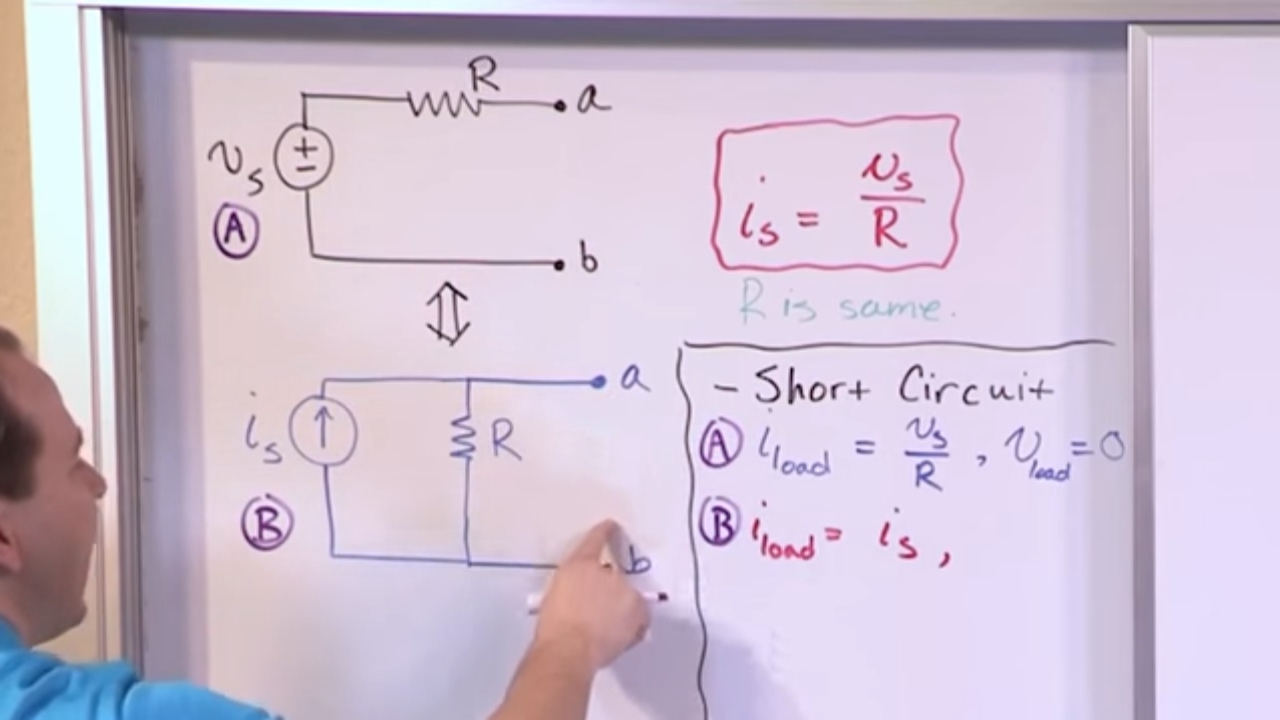 R
a
+
−
v_s
A
b
i_s = v_s / R
R is same.
a
i_s
R
B
b
- Short Circuit
A i_load = v_s / R , v_load = 0
B i_load = i_s ,